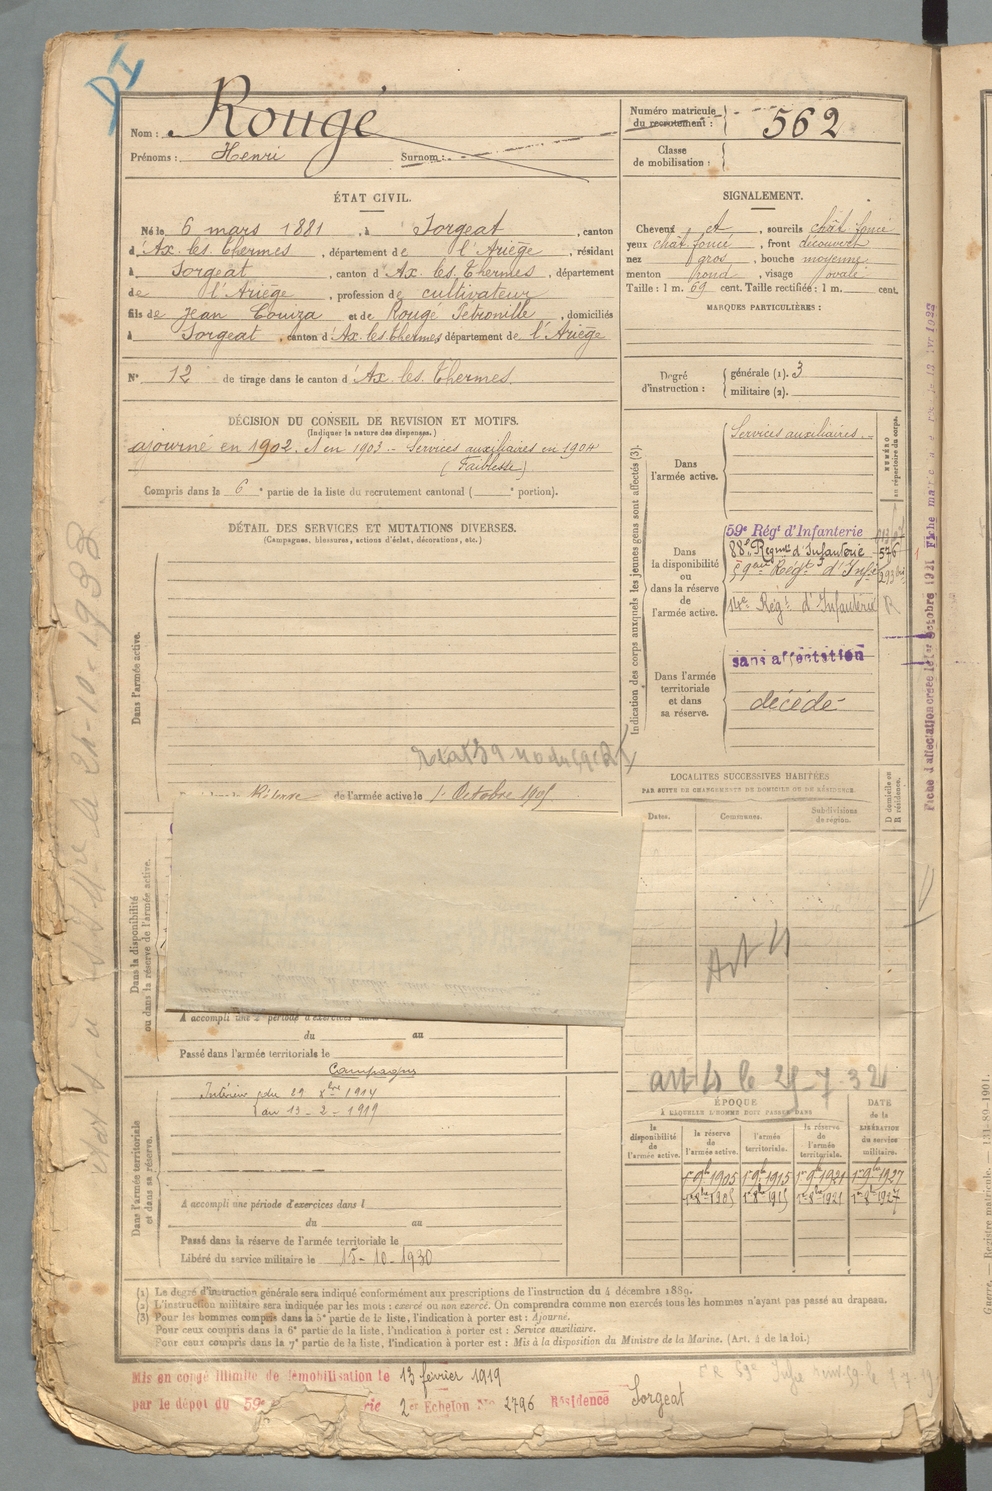 DI
Nom : Rougé
Prénoms : Henri Surnom :
Numéro matricule du recrutement : 562
Classe de mobilisation :
ÉTAT CIVIL.
Né le 6 mars 1881, à Sorgeat, canton
d'Ax-les-Thermes, département de l'Ariège, résidant
à Sorgeat, canton d'Ax-les-Thermes, département
de l'Ariège, profession de cultivateur
fils de Jean Couiza et de Rougé Pétronille, domiciliés
à Sorgeat, canton d'Ax-les-Thermes département de l'Ariège
N° 12 de tirage dans le canton d'Ax-les-Thermes.
SIGNALEMENT.
Cheveux et, sourcils chât. foncé
yeux chât. foncé, front découvert
nez gros, bouche moyenne
menton rond, visage ovale
Taille : 1 m. 69 cent. Taille rectifiée : 1 m. cent.
MARQUES PARTICULIÈRES :
Degré d'instruction : générale (1). 3
militaire (2).
DÉCISION DU CONSEIL DE REVISION ET MOTIFS.
(Indiquer la nature des dispenses.)
ajourné en 1902, et en 1903 - Services auxiliaires en 1904
(Faiblesse)
Compris dans la 6e partie de la liste du recrutement cantonal ( e portion).
DÉTAIL DES SERVICES ET MUTATIONS DIVERSES.
(Campagnes, blessures, actions d'éclat, décorations, etc.)
Dans l'armée active.
Réserve de l'armée active le 1er Octobre 1905
Dans la disponibilité
ou dans la réserve de l'armée active.
A accompli une 2e période d'exercices dans
du au
Passé dans l'armée territoriale le
Campagne
Intérieur du 29 Xbre 1914
au 13-2-1919
Dans l'armée territoriale
et dans sa réserve.
A accompli une période d'exercices dans l
du au
Passé dans la réserve de l'armée territoriale le
Libéré du service militaire le 15-10-1930
Indication des corps auxquels les jeunes gens sont affectés (3).
NUMÉRO
au répertoire du corps.
Dans
l'armée active.
Services auxiliaires.
Dans
la disponibilité
ou
dans la réserve
de
l'armée active.
59e Régt d'Infanterie
88e Régiment d'Infanterie 576
Dans l'armée
territoriale
et dans
sa réserve.
sans affectation
décédé
LOCALITÉS SUCCESSIVES HABITÉES
PAR SUITE DE CHANGEMENTS DE DOMICILE OU DE RÉSIDENCE.
Dates. Communes. Subdivisions de région.
D domicile ou
R résidence.
ÉPOQUE
À LAQUELLE L'HOMME DOIT PASSER DANS
la disponibilité de l'armée active.
la réserve de l'armée active.
l'armée territoriale.
la réserve de l'armée territoriale.
DATE de la LIBÉRATION du service militaire.
1er 9bre 1905 1er 9bre 1915 1er 9bre 1921 1er 9bre 1927
1er 8bre 1905 1er 8bre 1915 1er 8bre 1921 1er 8bre 1927
(1) Le degré d'instruction générale sera indiqué conformément aux prescriptions de l'instruction du 4 décembre 1889.
(2) L'instruction militaire sera indiquée par les mots : exercé ou non exercé. On comprendra comme non exercés tous les hommes n'ayant pas passé au drapeau.
(3) Pour les hommes compris dans la 5e partie de la liste, l'indication à porter est : Ajourné.
Pour ceux compris dans la 6e partie de la liste, l'indication à porter est : Service auxiliaire.
Pour ceux compris dans la 7e partie de la liste, l'indication à porter est : Mis à la disposition du Ministre de la Marine. (Art. 4 de la loi.)
Mis en congé illimité de démobilisation le 13 février 1919
par le dépôt du 59e rie 2e Echelon No 2796 Résidence Sorgeat